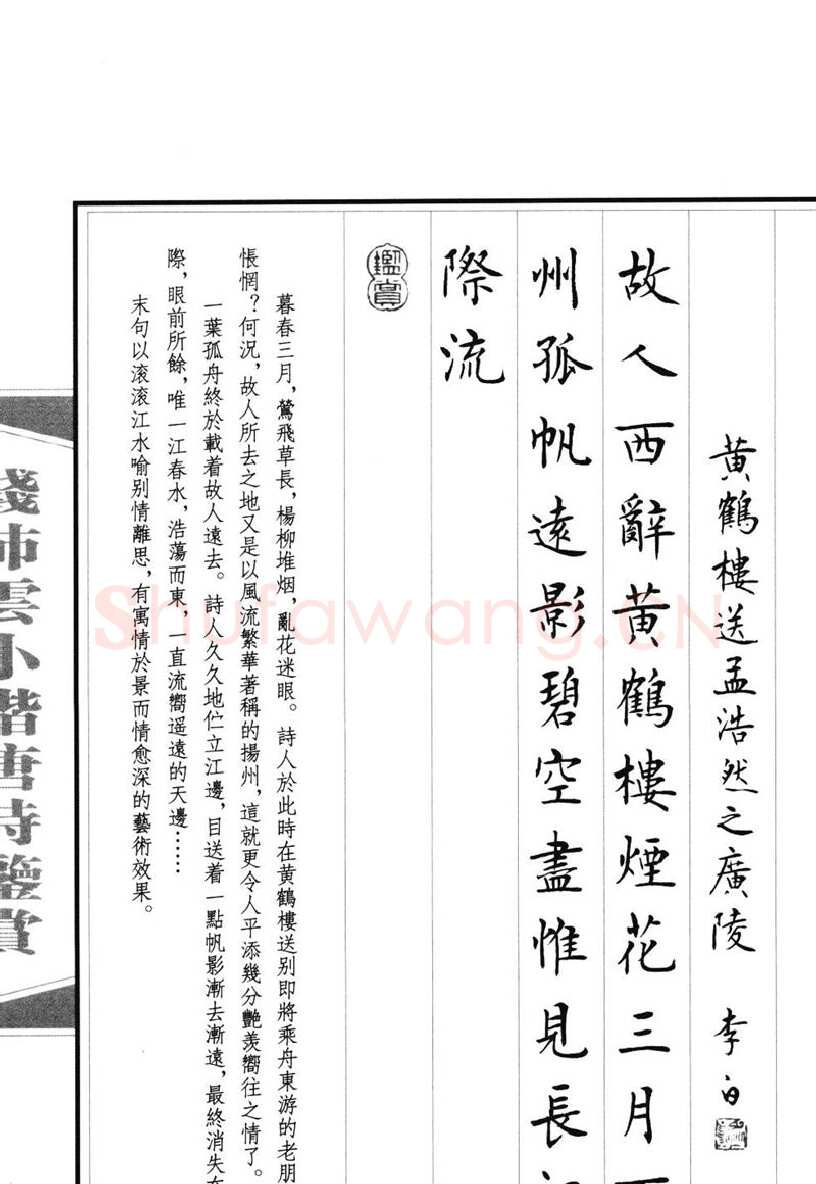 黄鶴樓送孟浩然之廣陵 李白
故人西辭黄鶴樓煙花三月
州孤帆遠影碧空盡惟見長
際流
鑑賞
暮春三月，鶯飛草長，楊柳堆烟，亂花迷眼。詩人於此時在黄鶴樓送别即將乘舟東游的老朋
悵惘？何況，故人所去之地又是以風流繁華著稱的揚州，這就更令人平添幾分艷羡嚮往之情了。
一葉孤舟終於載着故人遠去。詩人久久地伫立江邊，目送着一點帆影漸去漸遠，最終消失在
際，眼前所餘，唯一江春水，浩蕩而東，一直流嚮遥遠的天邊……
末句以滚滚江水喻别情離思，有寓情於景而情愈深的藝術效果。
錢沛雲小楷唐詩鑒賞
Shufawang.CN